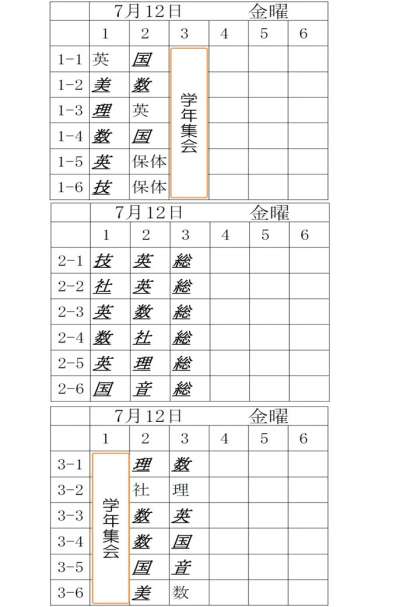 7月12日 金曜
1 2 3 4 5 6
1-1 英 国
1-2 美 数
1-3 理 英
1-4 数 国
1-5 英 保体
1-6 技 保体
学年集会
7月12日 金曜
1 2 3 4 5 6
2-1 技 英 総
2-2 社 英 総
2-3 英 数 総
2-4 数 社 総
2-5 英 理 総
2-6 国 音 総
7月12日 金曜
1 2 3 4 5 6
学年集会
3-1 理 数
3-2 社 理
3-3 数 英
3-4 数 国
3-5 国 音
3-6 美 数